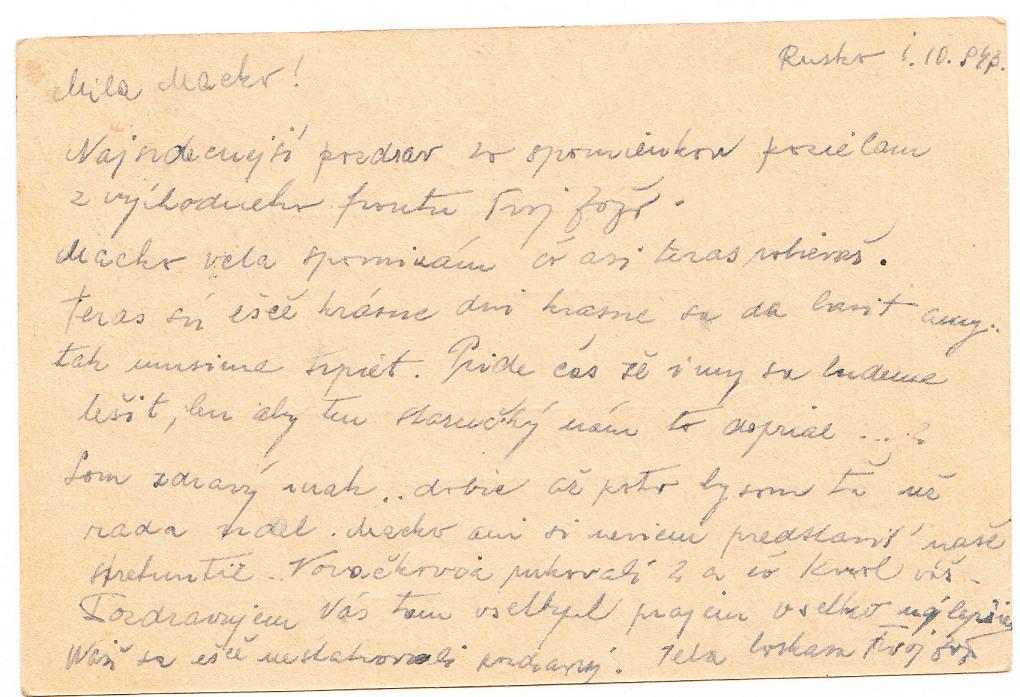 Rusko 1. 10. 943.
Milá Macko!
Najsrdecnejší pozdrav zo spomienkov posielam
z východneho frontu Tvoj Jožo.
Macko vela spominám čo asi teraz robievaš.
Teras sú ešče krásne dni krasne sa da bavit a my..
tak musime trpiet. Pride čas žě i my sa budeme
tešit, len aby ten staručký nám to doprial ... ?
Som zdravý inak .. dobre až na to by som ťa už
rada videl. Macko ani si neviem predstaviť naše
stretnutie .. Novačkova rukovali ? a čo Karol váš.
Pozdravujem Vás tam prajem vsetko najlepšie
sa ešče nestahovali pozdravuj. Vela boskam Tvoj Jožo